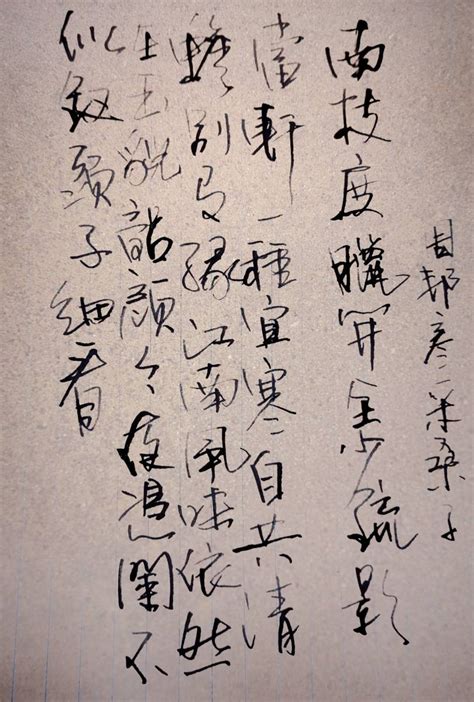 周邦彦采桑子
南枝度臘开全少疏影
當軒一種宜寒自共清
蟾别有緣江南風味依然
在玉貌韶顔今夜憑闌不
似釵頭子細看